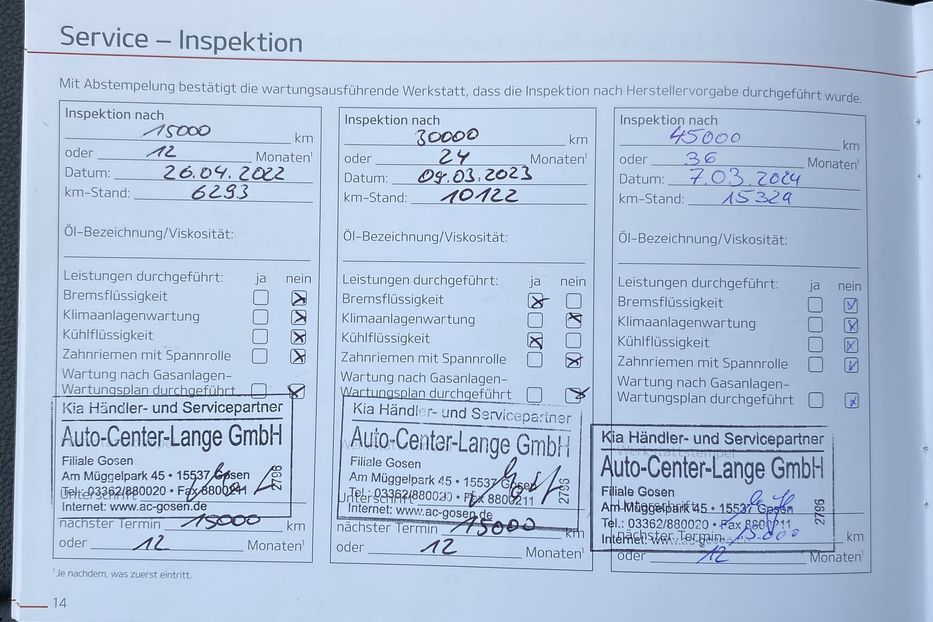 Service – Inspektion
Mit Abstempelung bestätigt die wartungsausführende Werkstatt, dass die Inspektion nach Herstellervorgabe durchgeführt wurde.
Inspektion nach
15000 km
oder 12 Monaten¹
Datum: 26.04.2022
km-Stand: 6293
Öl-Bezeichnung/Viskosität:
Leistungen durchgeführt: ja nein
Bremsflüssigkeit
Klimaanlagenwartung
Kühlflüssigkeit
Zahnriemen mit Spannrolle
Wartung nach Gasanlagen-
Wartungsplan durchgeführt
Kia Händler- und Servicepartner
Auto-Center-Lange GmbH
Filiale Gosen
Am Müggelpark 45 • 15537 Gosen
Tel.: 03362/880020 • Fax 8800211
2796
Unterschrift
Internet: www.ac-gosen.de
nächster Termin 15000 km
oder 12 Monaten¹
Inspektion nach
30000 km
oder 24 Monaten¹
Datum: 09.03.2023
km-Stand: 10122
Öl-Bezeichnung/Viskosität:
Leistungen durchgeführt: ja nein
Bremsflüssigkeit
Klimaanlagenwartung
Kühlflüssigkeit
Zahnriemen mit Spannrolle
Wartung nach Gasanlagen-
Wartungsplan durchgeführt
Kia Händler- und Servicepartner
Auto-Center-Lange GmbH
Filiale Gosen
Am Müggelpark 45 • 15537 Gosen
Tel.: 03362/880020 • Fax 8800211
2796
Unterschrift
Internet: www.ac-gosen.de
nächster Termin 15000 km
oder 12 Monaten¹
Inspektion nach
45000 km
oder 36 Monaten¹
Datum: 7.03.2024
km-Stand: 15329
Öl-Bezeichnung/Viskosität:
Leistungen durchgeführt: ja nein
Bremsflüssigkeit
Klimaanlagenwartung
Kühlflüssigkeit
Zahnriemen mit Spannrolle
Wartung nach Gasanlagen-
Wartungsplan durchgeführt
Kia Händler- und Servicepartner
Auto-Center-Lange GmbH
Filiale Gosen
Am Müggelpark 45 • 15537 Gosen
Tel.: 03362/880020 • Fax 8800211
2796
Internet:
nächster Termin 15.000 km
oder 12 Monaten¹
¹Je nachdem, was zuerst eintritt.
14